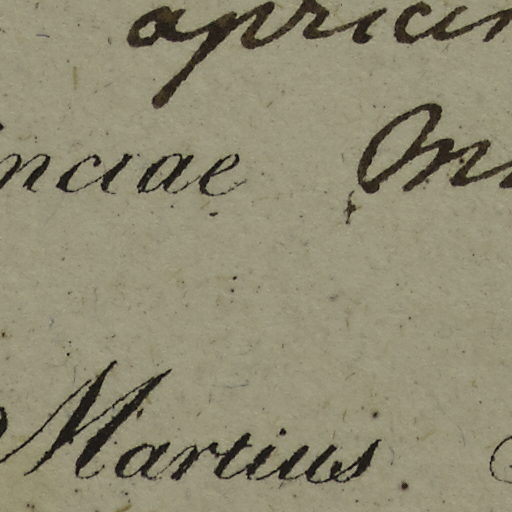 apric
inciae M
Martius